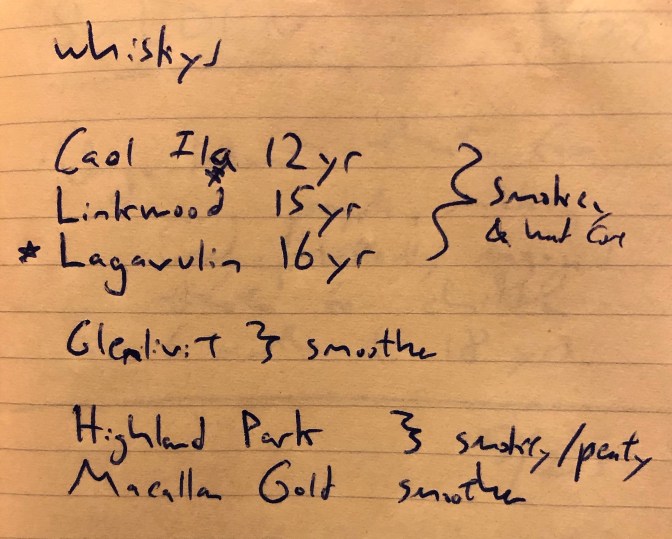 whiskys
Caol Ila 12yr
Linkwood 15yr
* Lagavulin 16yr
} smokey
& 
Glenlivit } smoother
Highland Park } smokey/peaty
Macallan Gold smoother